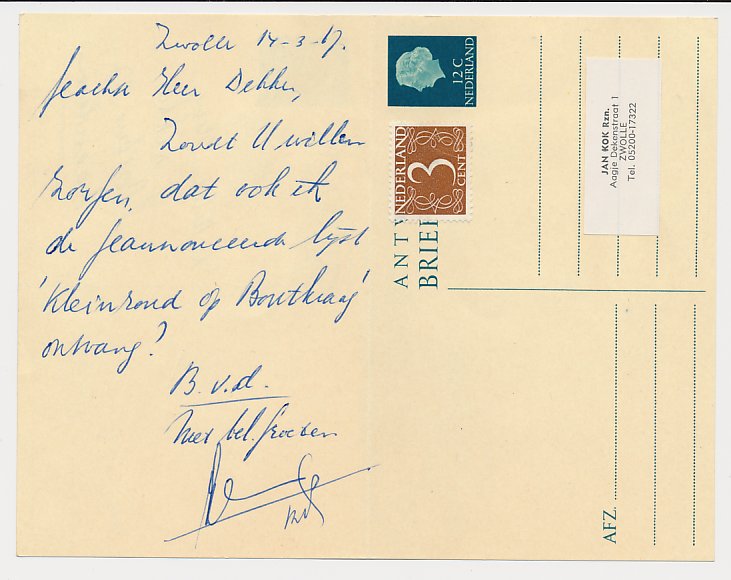 Zwolle 14-3-67.
Geachte Heer Dekker,
Zoudt U willen
zorgen, dat ook ik
de geannonceerde lijst
'Kleinrond op Bontkraag'
ontvang?
B.v.d.
Met bel. groeten
12 C
NEDERLAND
NEDERLAND
3
CENT
ANTW
BRIEF
JAN KOK Rzn.
Aagje Dekenstraat 1
ZWOLLE
Tel. 05200-17322
AFZ.